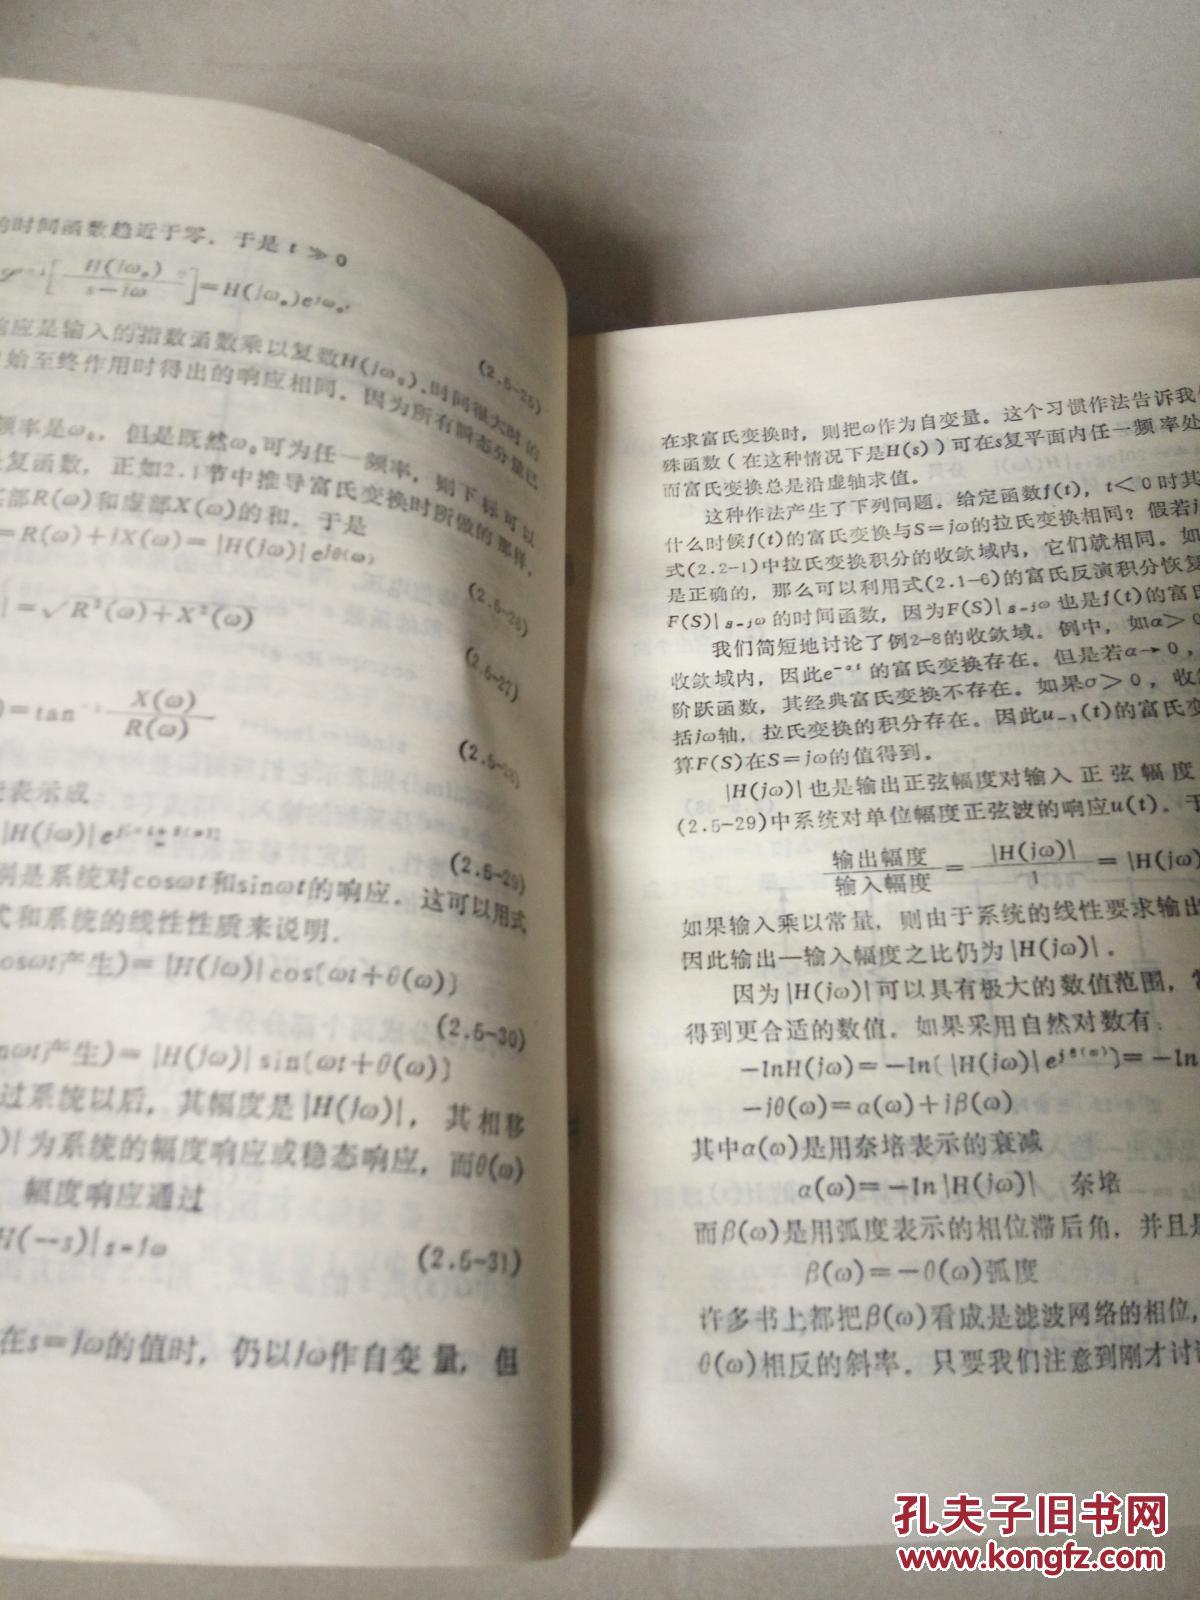 的时间函数趋近于零．于是 t ≫ 0
ℒ⁻¹[H(jω₀)/(s−jω)]=H(jω₀)e^{jω₀t}
(2.5-25)
响应是输入的指数函数乘以复数H(jω₀)．时间很大时的
始至终作用时得出的响应相同．因为所有瞬态分量已
频率是ω₀，但是既然ω₀可为任一频率，则下标可以
复函数，正如2.1节中推导富氏变换时所做的那样，
部R(ω)和虚部X(ω)的和．于是
=R(ω)+jX(ω)=|H(jω)|e^{jθ(ω)}
(2.5-26)
|=√R²(ω)+X²(ω)
(2.5-27)
)=tan⁻¹ X(ω)/R(ω)
(2.5-28)
表示成
|H(jω)|e
(2.5-29)
例是系统对cosωt和sinωt的响应．这可以用式
式和系统的线性性质来说明．
cosωt产生)=|H(jω)|cos〔ωt+θ(ω)〕
(2.5-30)
nωt产生)=|H(jω)|sin〔ωt+θ(ω)〕
过系统以后，其幅度是|H(jω)|，其相移
)|为系统的幅度响应或稳态响应，而θ(ω)
幅度响应通过
H(−s)|s=jω (2.5-31)
在s=jω的值时，仍以jω作自变量，但
在求富氏变换时，则把ω作为自变量。这个习惯作法告诉我
殊函数（在这种情况下是H(s)）可在s复平面内任一频率处
而富氏变换总是沿虚轴求值。
这种作法产生了下列问题。给定函数f(t)，t<0时其
什么时候f(t)的富氏变换与S=jω的拉氏变换相同？假若
式(2.2-1)中拉氏变换积分的收敛域内，它们就相同。如
是正确的，那么可以利用式(2.1-6)的富氏反演积分恢复
F(S)|s=jω的时间函数，因为F(S)|s=jω也是f(t)的富氏
我们简短地讨论了例2-8的收敛域。例中，如α>0
收敛域内，因此e^{-αt}的富氏变换存在。但是若α→0，
阶跃函数，其经典富氏变换不存在。如果σ>0，收敛
括jω轴，拉氏变换的积分存在。因此u₋₁(t)的富氏变
算F(S)在S=jω的值得到。
|H(jω)|也是输出正弦幅度对输入正弦幅度
(2.5-29)中系统对单位幅度正弦波的响应u(t)．于
输出幅度/输入幅度=|H(jω)|/1=|H(jω)
如果输入乘以常量，则由于系统的线性要求输出
因此输出—输入幅度之比仍为|H(jω)|．
因为|H(jω)|可以具有极大的数值范围，常
得到更合适的数值．如果采用自然对数有
−lnH(jω)=−ln〔|H(jω)|e^{jθ(ω)}〕=−ln
−jθ(ω)=α(ω)+jβ(ω)
其中α(ω)是用奈培表示的衰减
α(ω)=−ln|H(jω)| 奈培
而β(ω)是用弧度表示的相位滞后角，并且是
β(ω)=−θ(ω)弧度
许多书上都把β(ω)看成是滤波网络的相位，
θ(ω)相反的斜率．只要我们注意到刚才讨论
孔夫子旧书网
www.kongfz.com